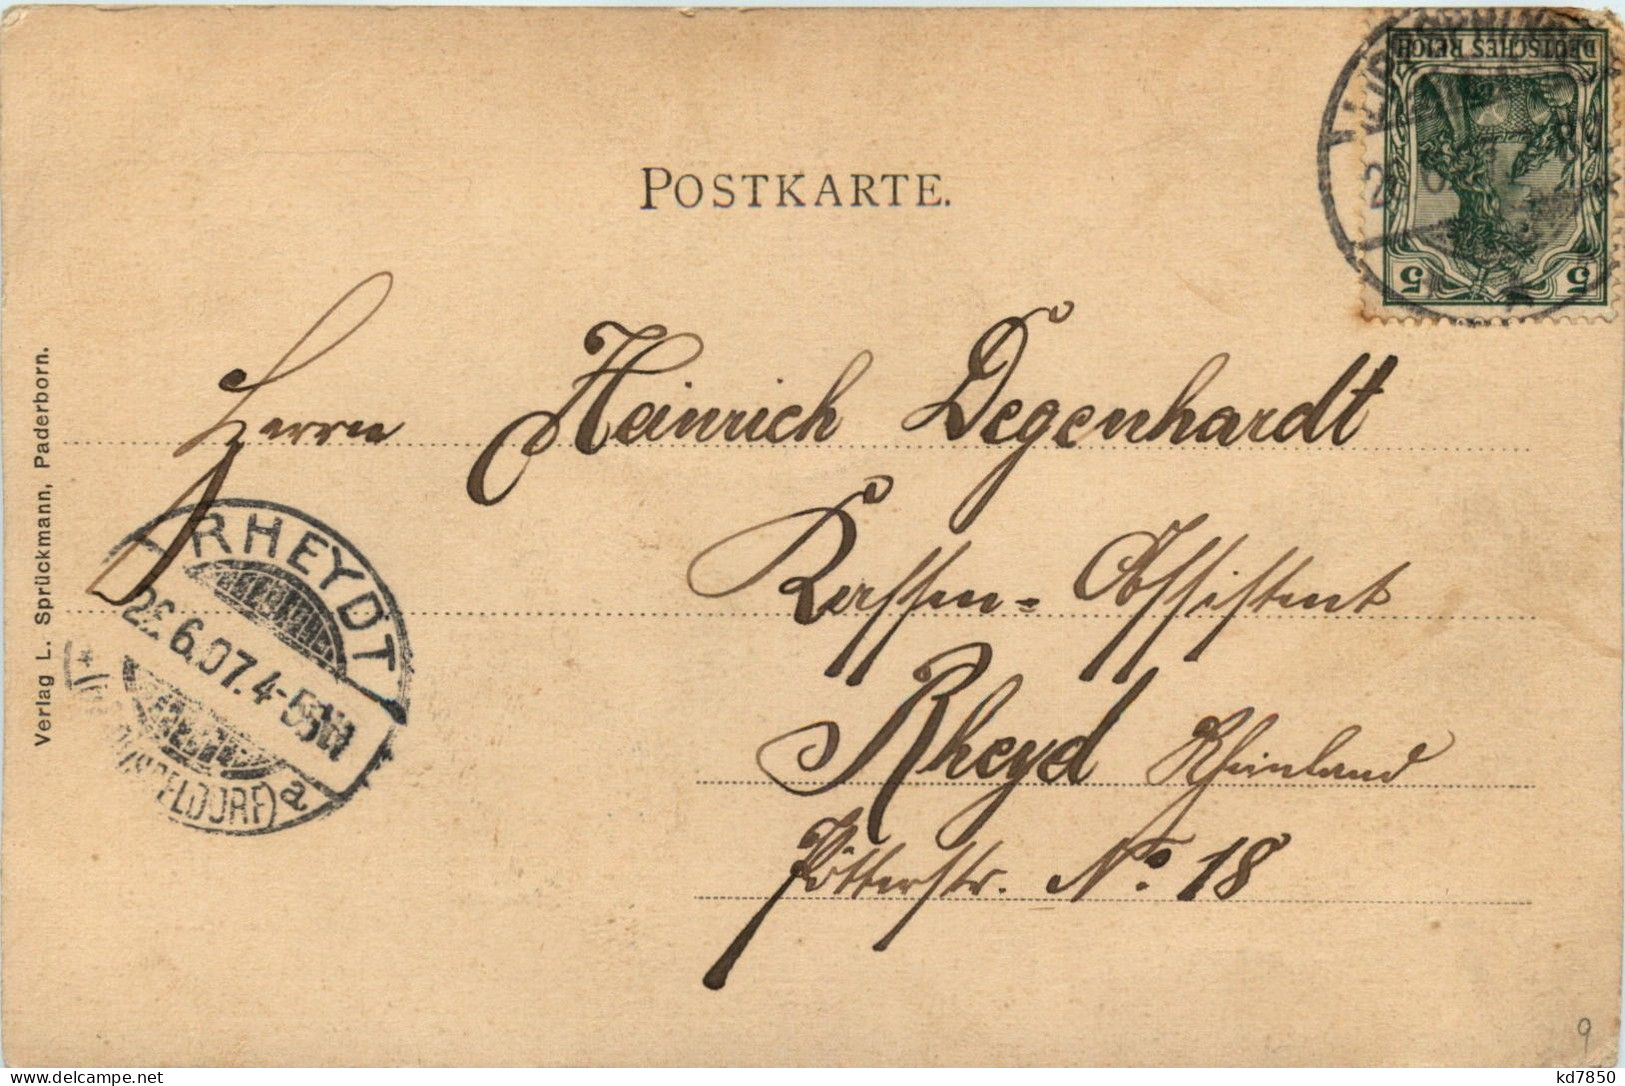 POSTKARTE.
DEUTSCHES REICH
5 5
Herrn Heinrich Degenhardt
Kassen-Assistent
Rheyd Rheinland
Pötterstr. No. 18
RHEYDT
6.07. 4-5N
DÜSSELDORF) a
Verlag L. Sprückmann, Paderborn.
9
kd7850